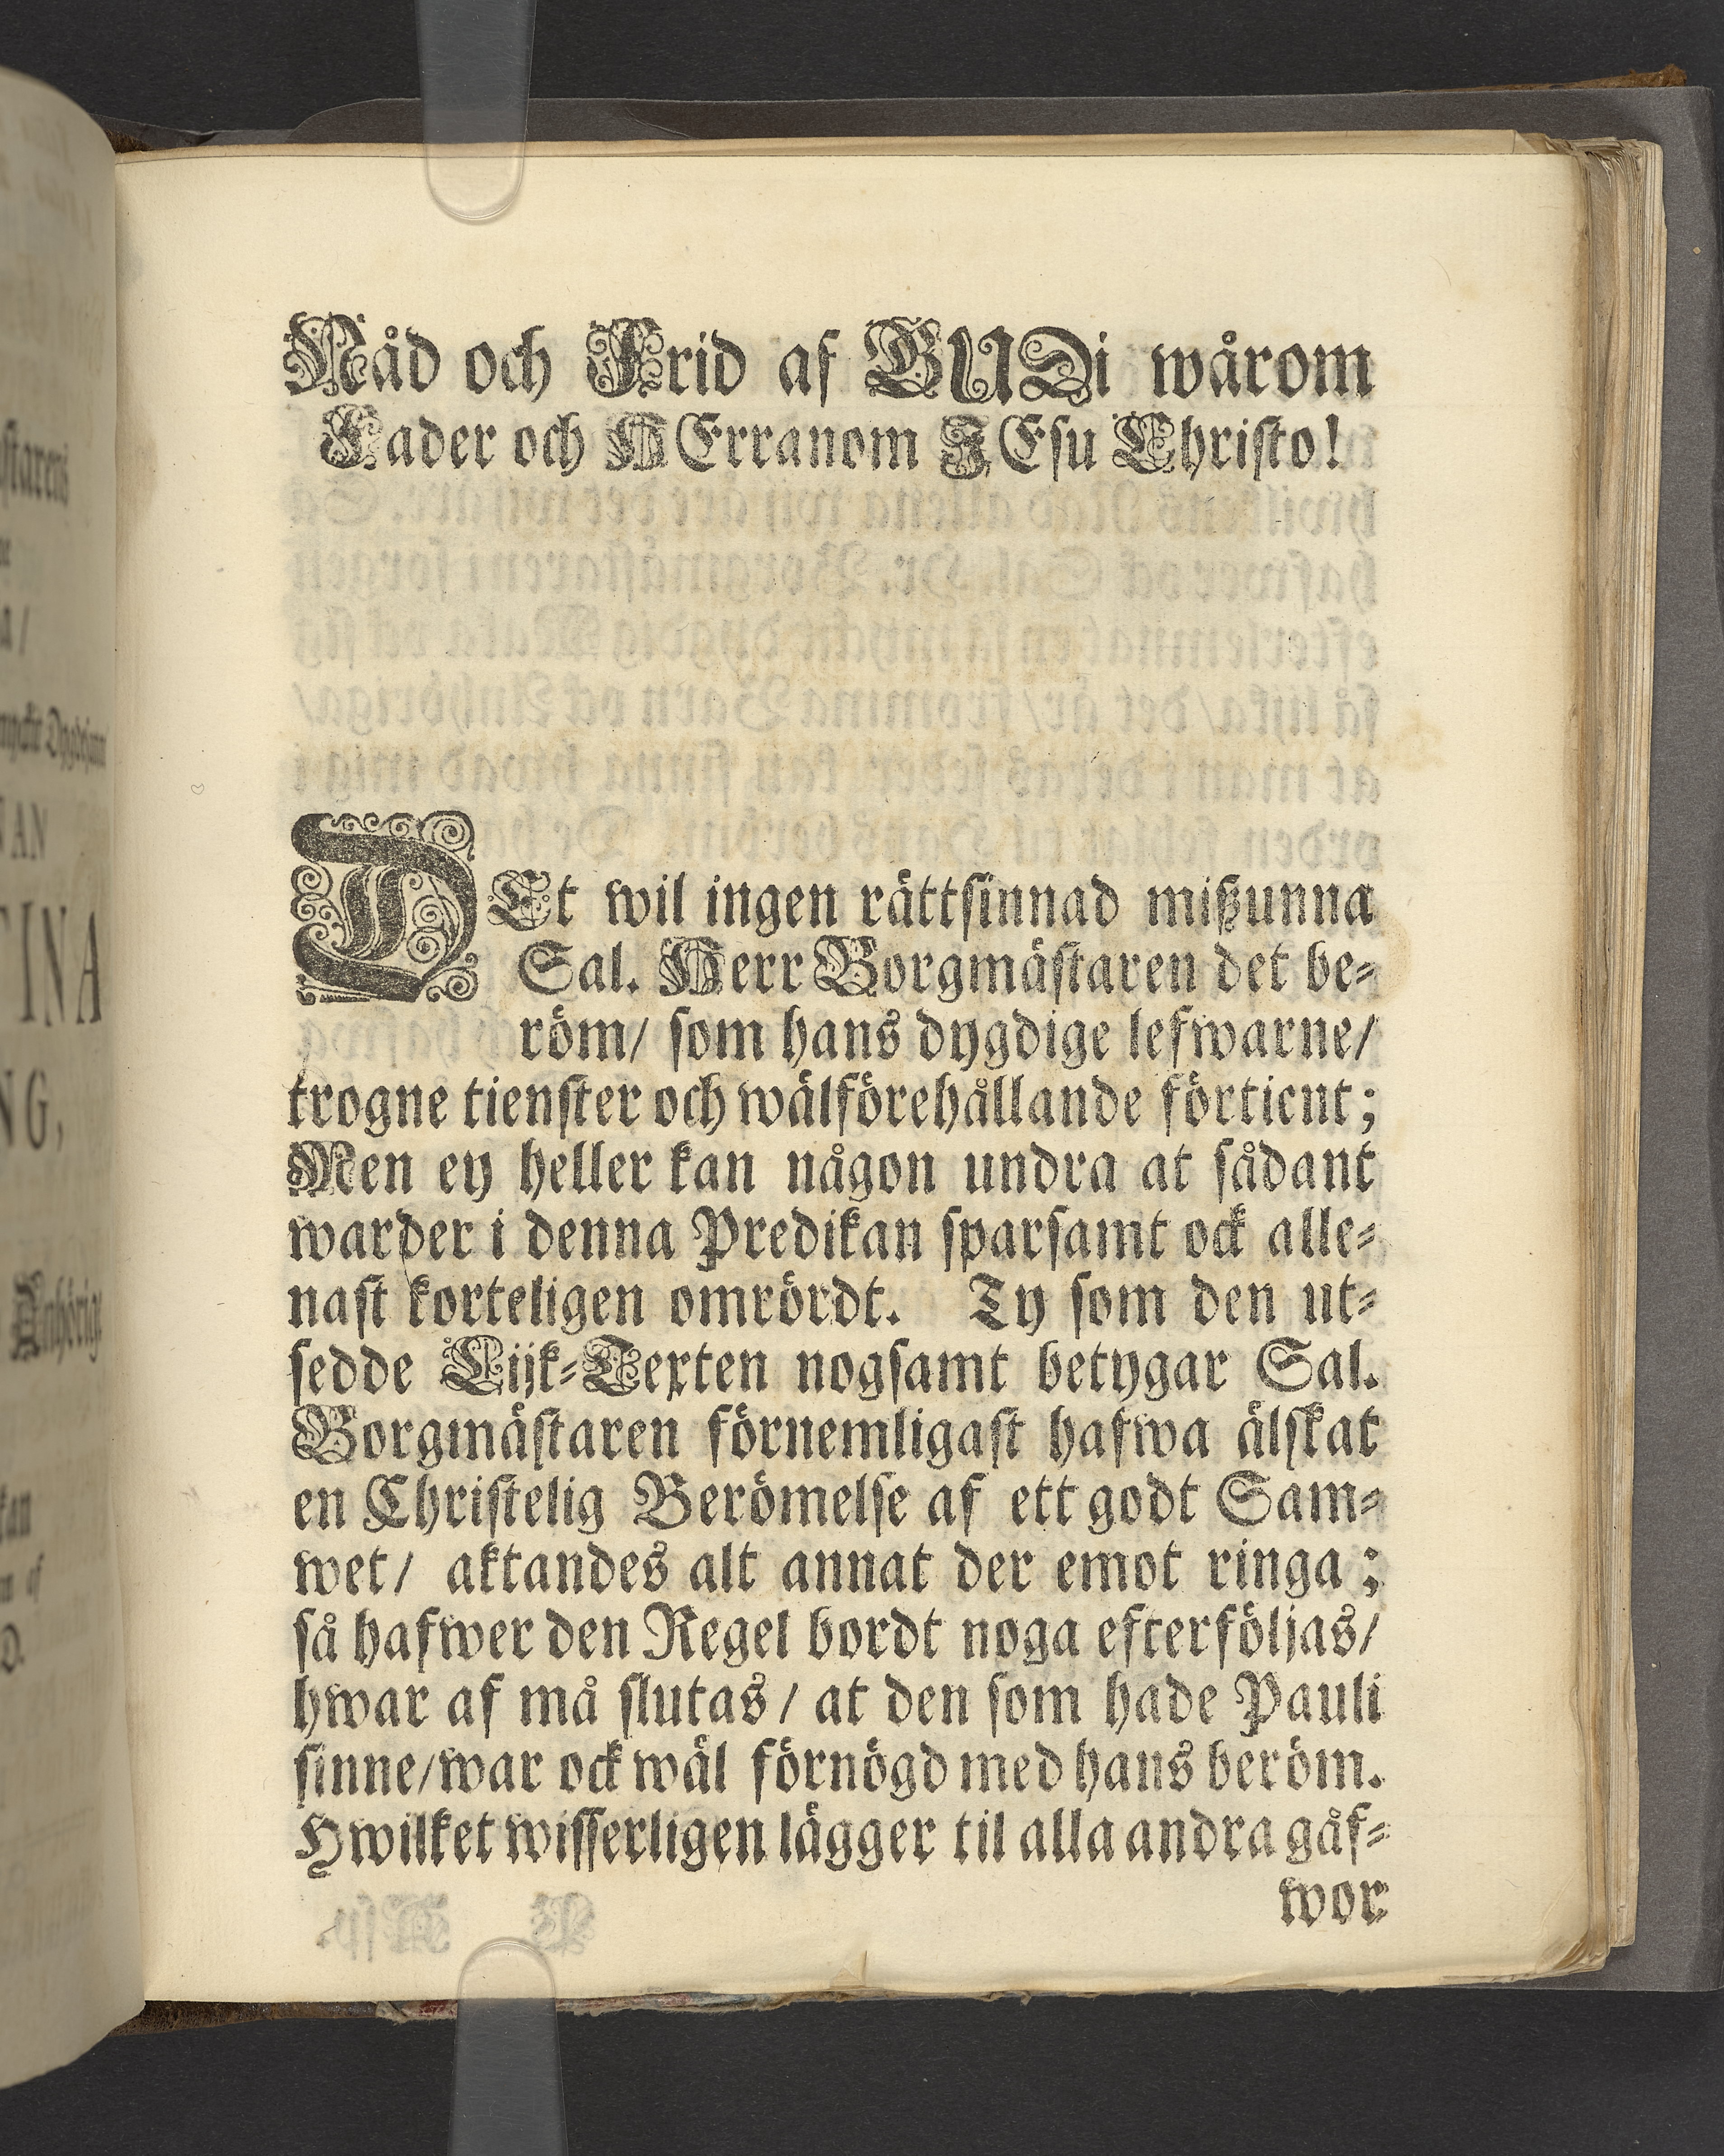 Nåd och Frid af GUDi wårom
Fader och HErranom JEsu Christo!
DEt wil ingen rättsinnad mißunna
Sal. Herr Borgmästaren det be-
röm/ som hans dygdige lefwarne/
trogne tienster och wälförehållande förtient;
Men ey heller kan någon undra at sådant
warder i denna Predikan sparsamt ock alle-
nast korteligen omrördt. Ty som den ut-
sedde Lijk-Texten nogsamt betygar Sal.
Borgmästaren förnemligast hafwa älskat
en Christelig Berömelse af ett godt Sam-
wet/ aktandes alt annat der emot ringa;
så hafwer den Regel bordt noga efterföljas/
hwar af må slutas/ at den som hade Pauli
sinne/war ock wäl förnögd med hans beröm.
Hwilket wisserligen lägger til alla andra gåf-
wor